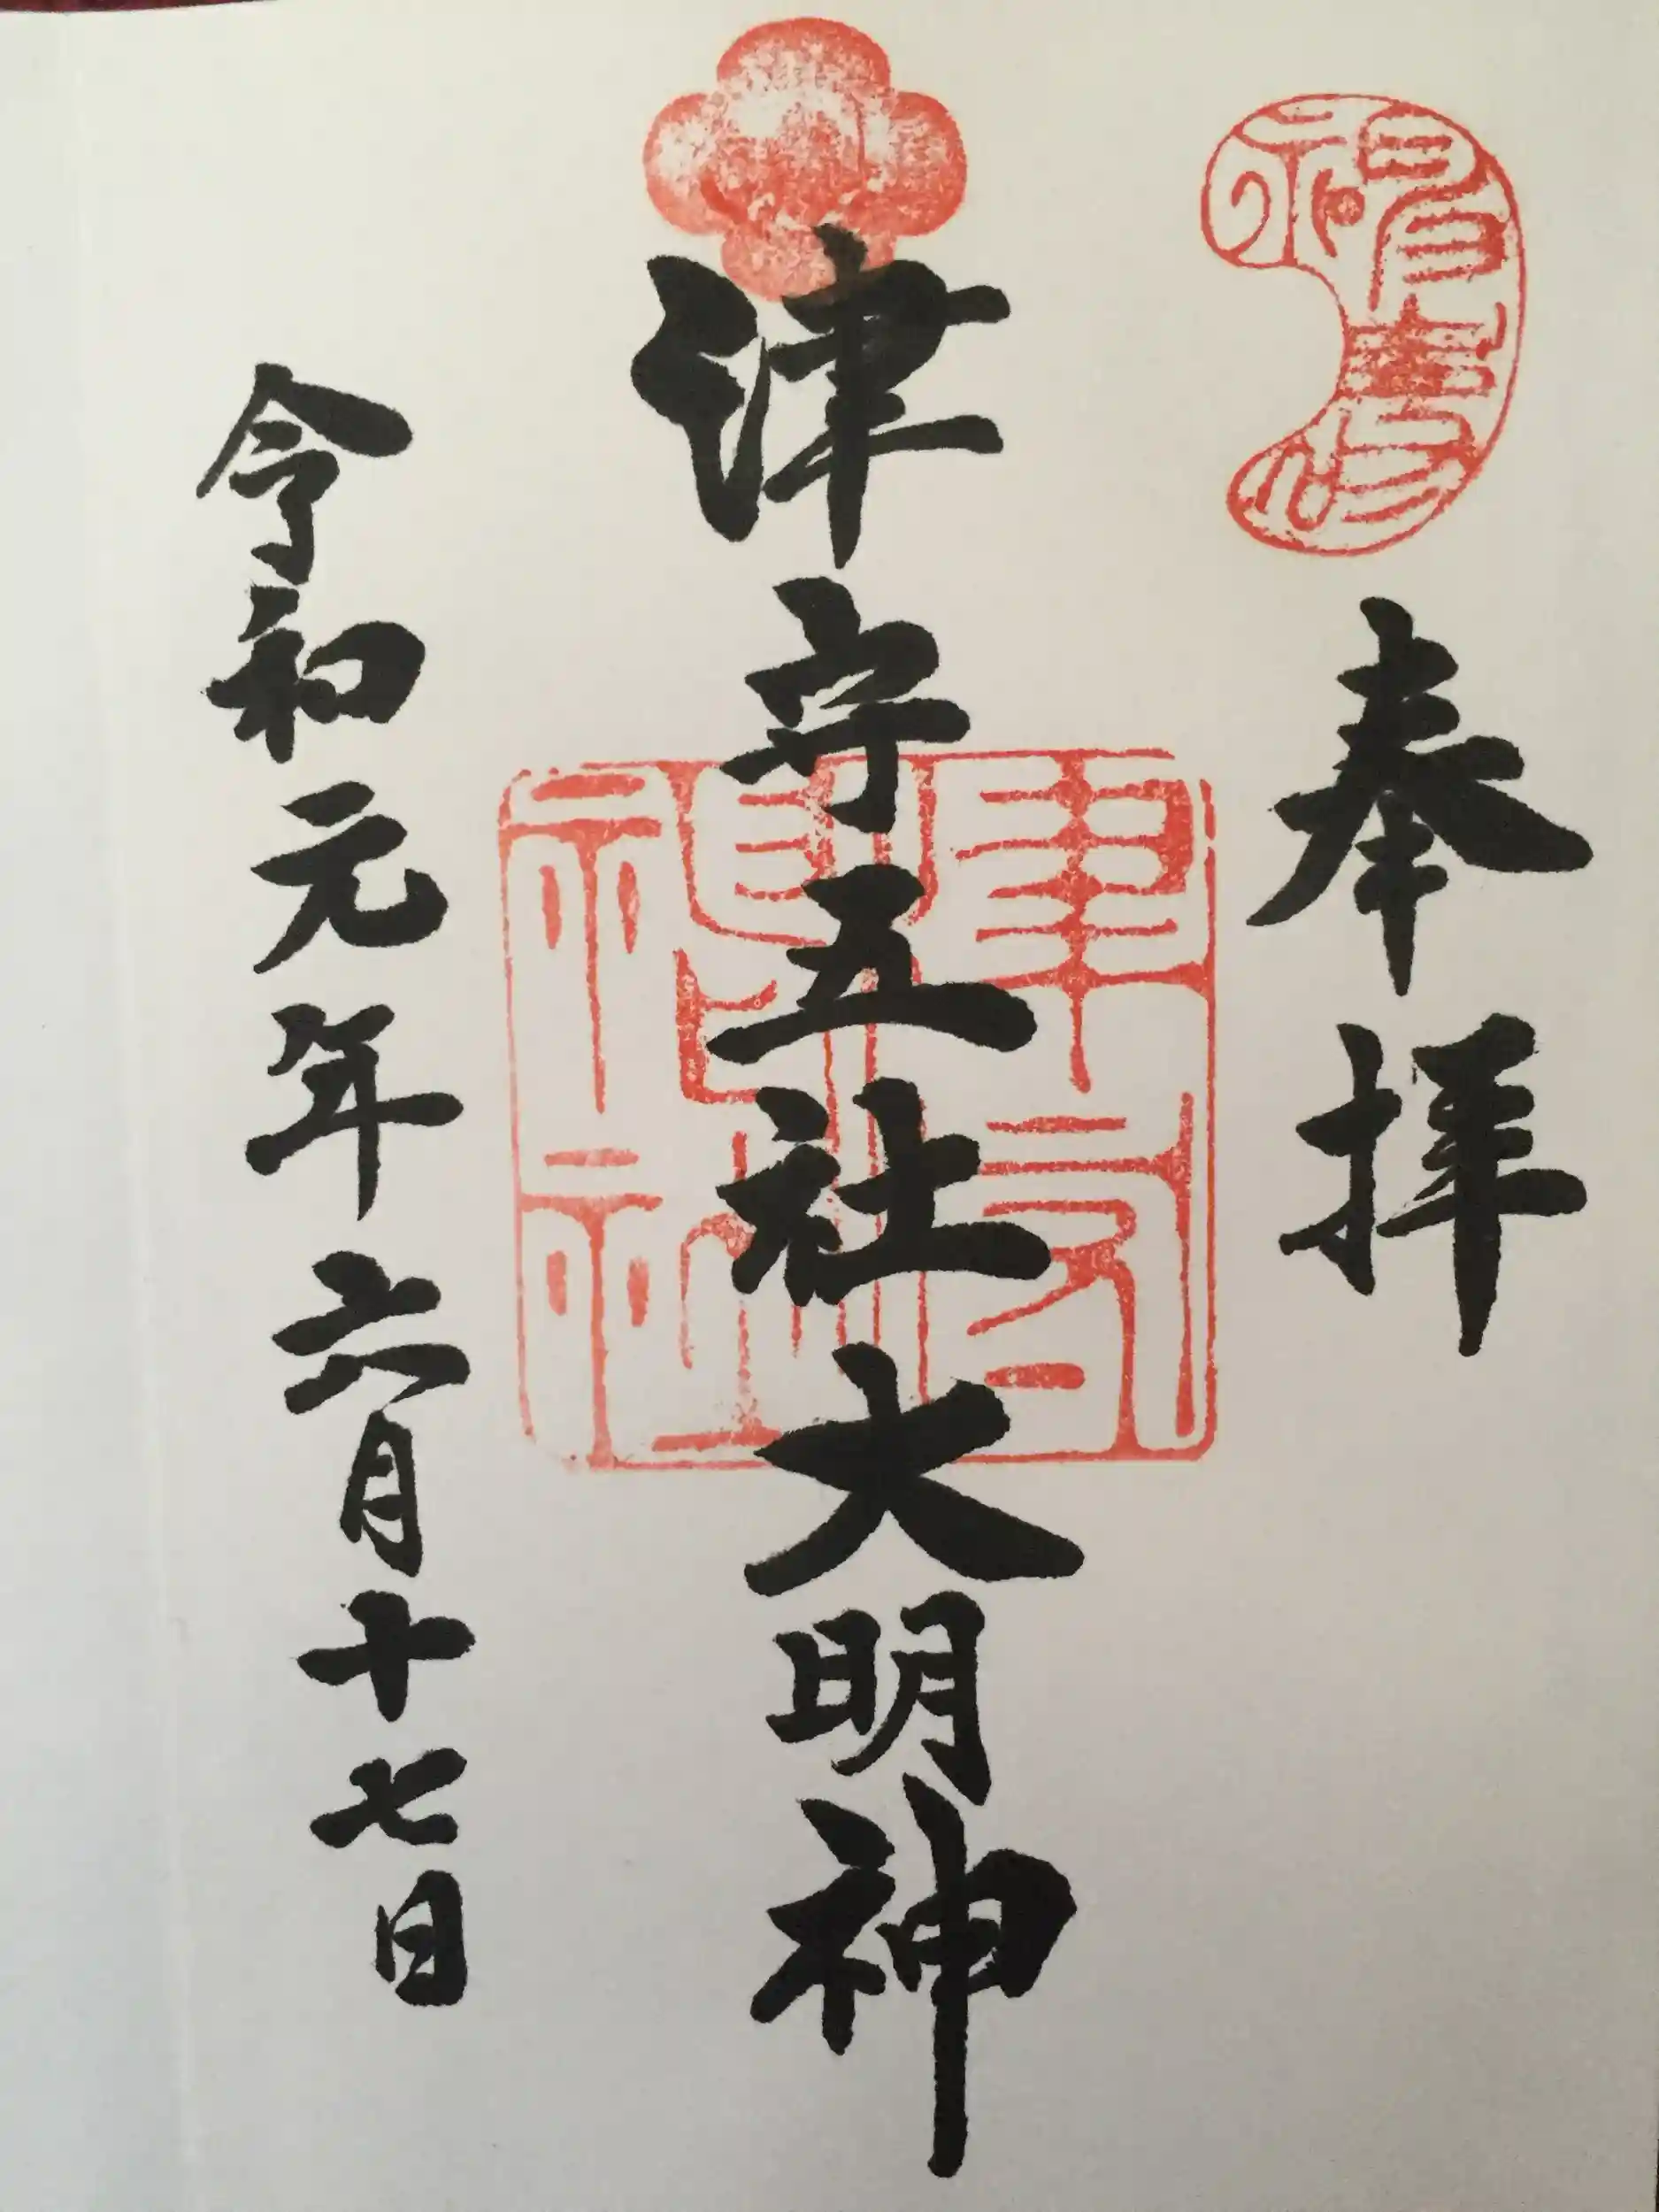 奉拝
津守五社大明神
令和元年六月十七日
津守神社